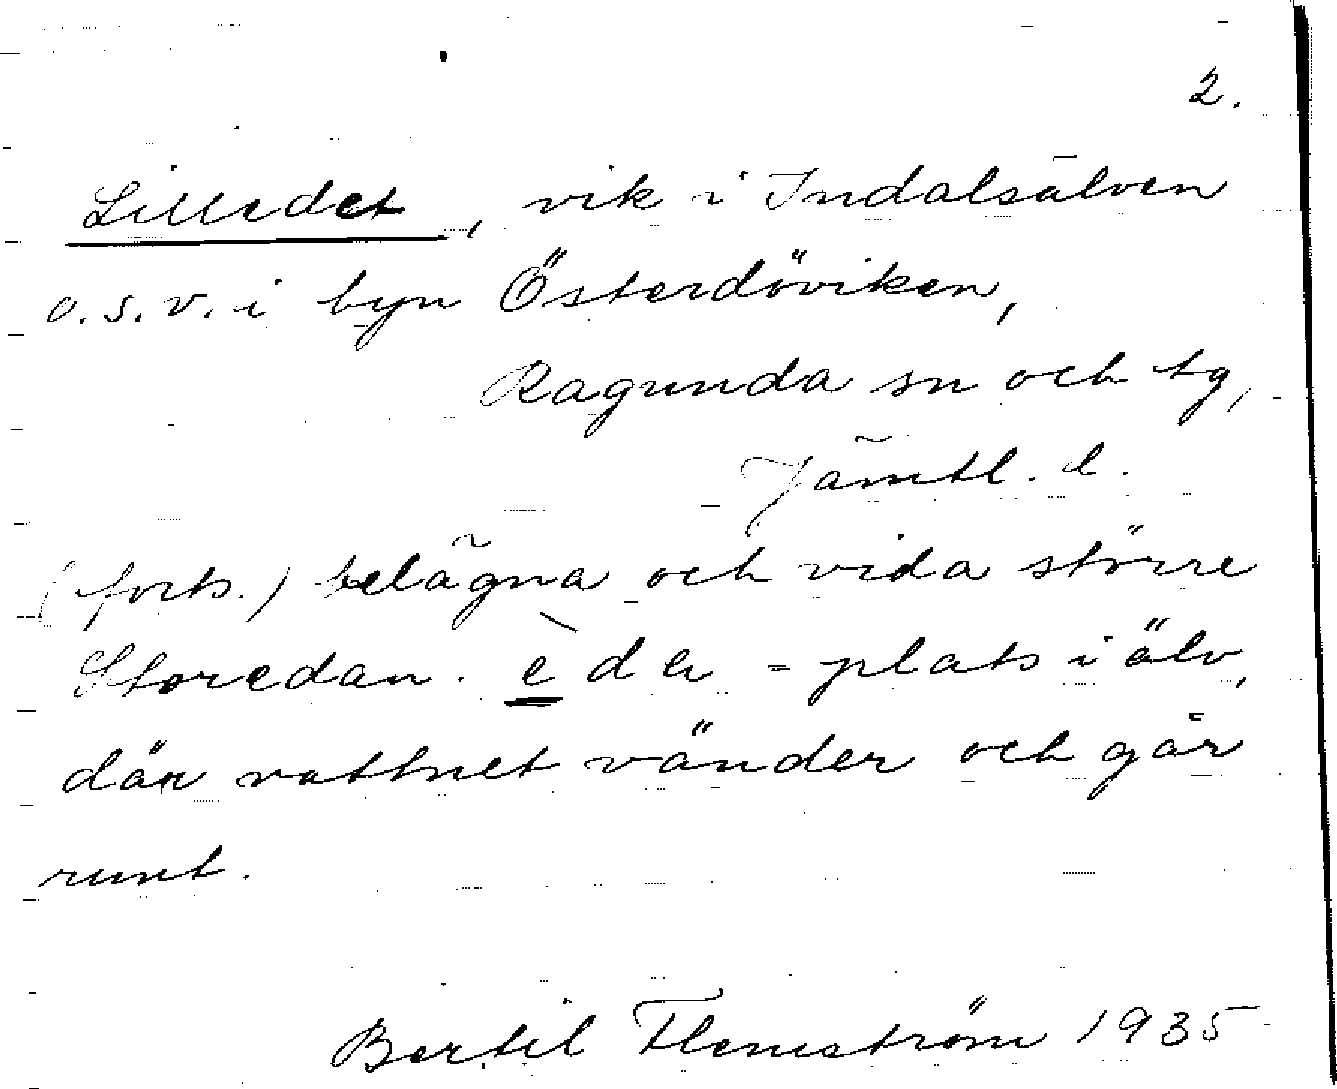 2.
Lilledet, vik i Indalsälven
o.s.v. i byn Österdöviken,
Ragunda sn och tg,
Jämtl. l.
(forts.) belägna och vida större
Storedan. è da = plats i älv,
där vattnet vänder och går
runt.
Bertil Flemström 1935